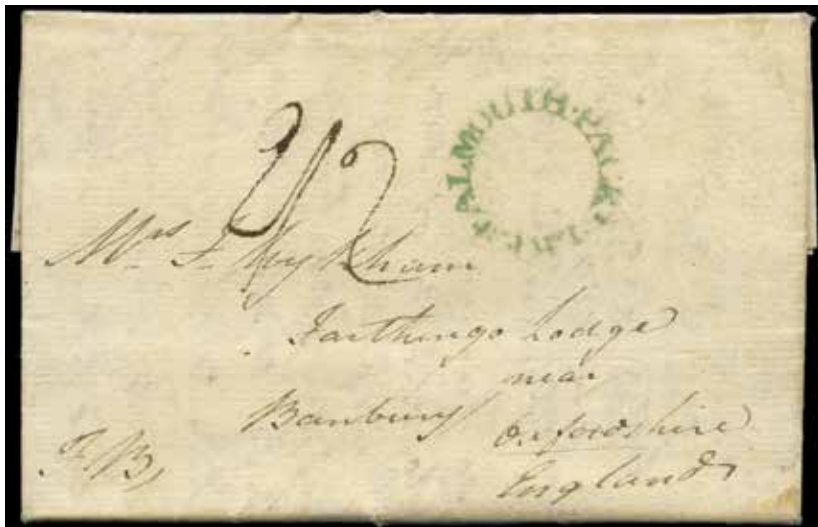 FALMOUTH·PACKET LET
2/2
Mrs F Wykham
Farthingo Lodge
near
Banbury Oxfordshire
England
F B,